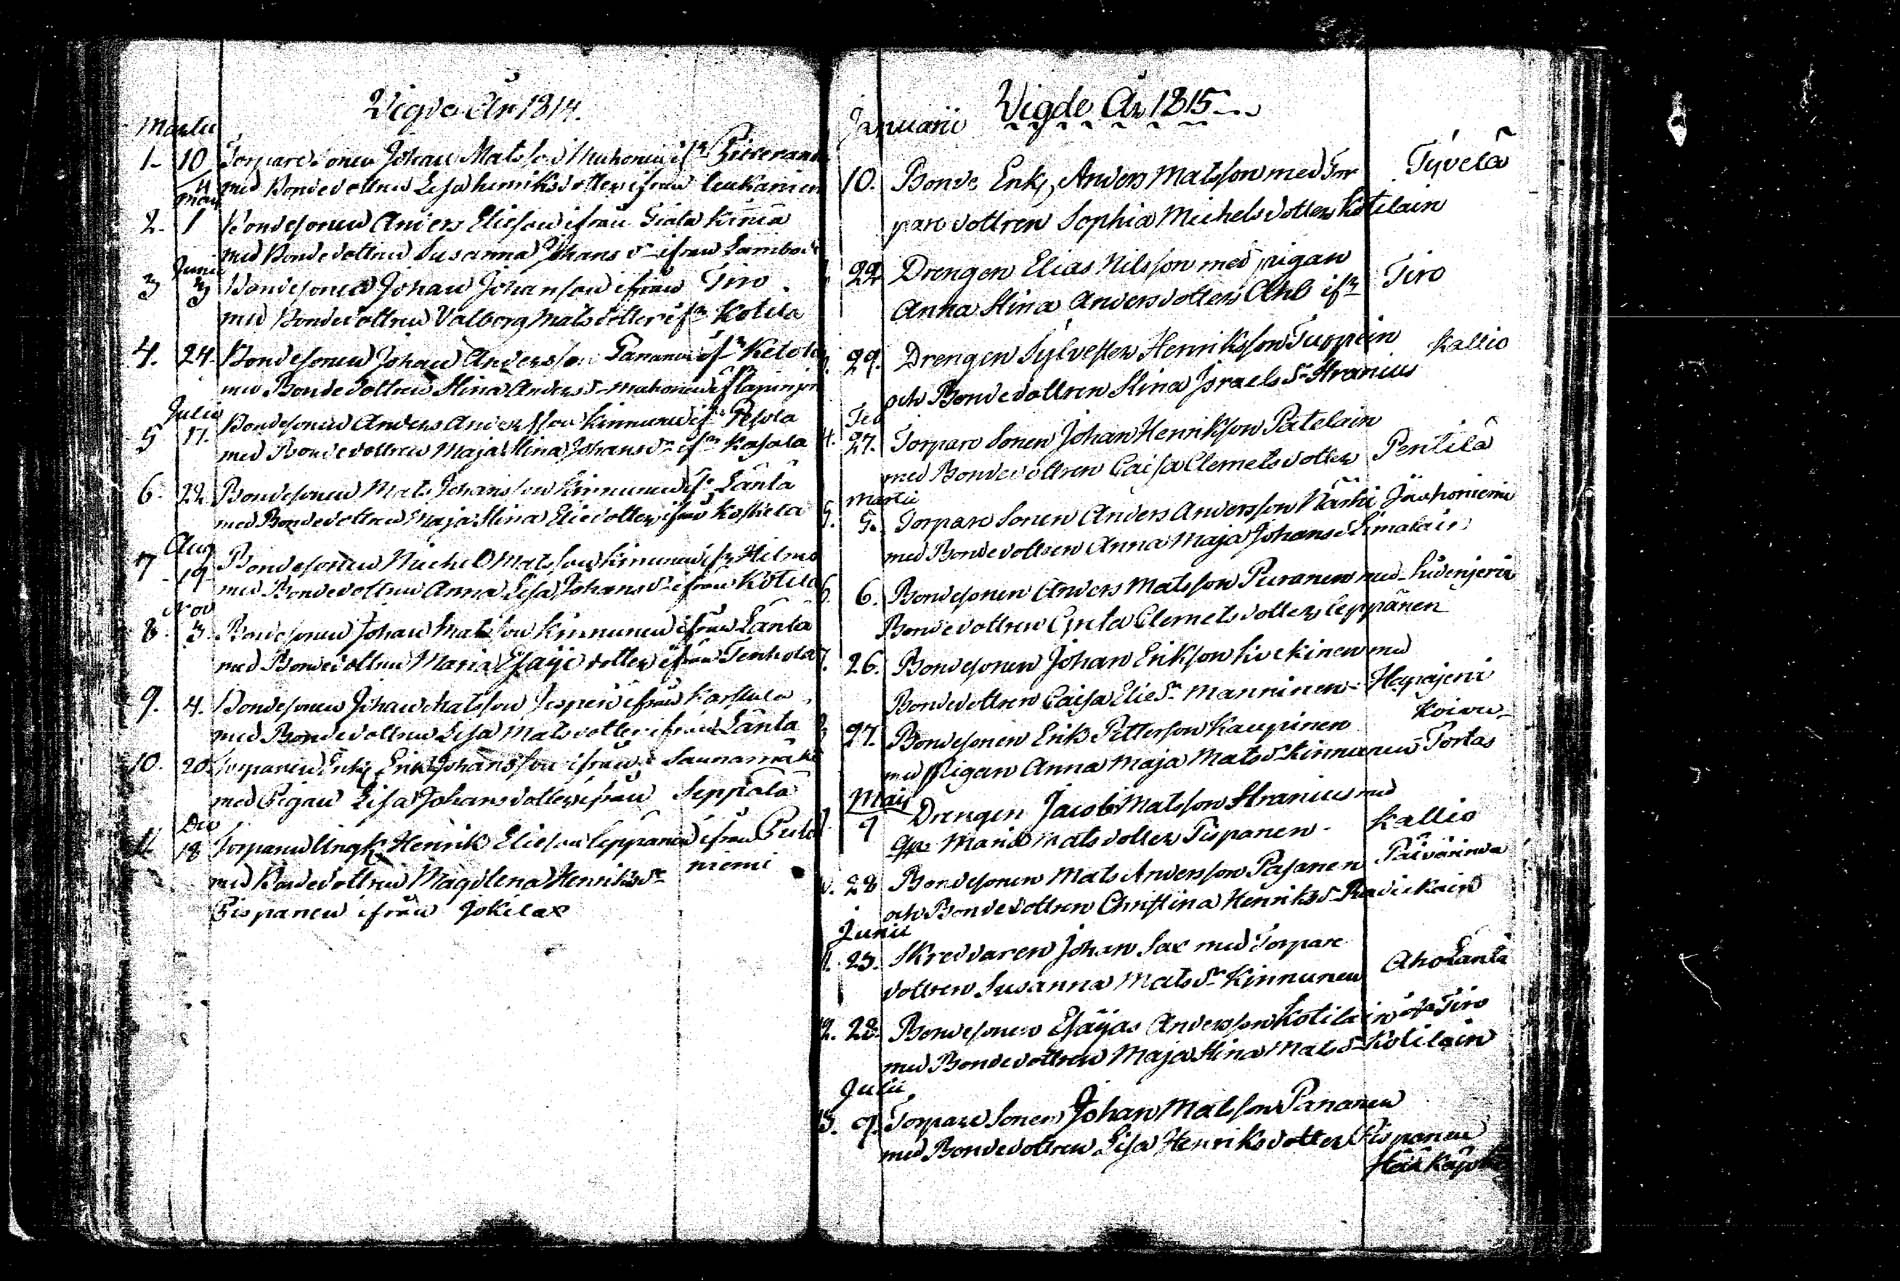 Vigde År 1814.
Martii
1. 10 Torpare Sonen Johan Matsson Muhonen ifr
4 med Bondedottren Lisa Henriksdotter ifrån Leukanien
Maij
2. 1 Bondesonen Anders Eliesson ifrån Kinia
med Bondedottren Susanna Johans dr ifrån
Junii
3 3 Bondesonen Johan Johansson ifrån Tiro.
med Bondedottren Valborg Matsdotter ifr Kotila
4. 24. Bondesonen Johan Andersson Pananen ifr Ketola
med Bondedottren Stina Anders dr Muhonen ifr
Julii
5 17. Bondesonen Anders Andersson Kinnunen ifr Pesola
med Bondedottren Maja Stina Johans dr ifr Kasala
6. 22. Bondesonen Mats Johansson Kinnunen ifr Länta
med Bondedottren Maja Stina Eliedotter ifrån Koskela
Aug
7 19. Bondesonen Michel Matsson Kinnunen ifr Hilmo
med Bondedottren Anna Lisa Johans dr ifrån Kotila
Nov
8. 3. Bondesonen Johan Matsson Kinnunen ifrån Länta
med Bondedottren Maria Esaije dotter ifrån Tenhola
9. 4. Bondesonen Johan Matsson ifrån Karstula
med Bondedottren Lisa Matsdotter ifrån Länta
10. 20. Torparen Enkl Erik Johansson ifrån Saunamäki
med Pigan Lisa Johansdotter ifrån Seppälä
Dec
11 18 Torparen Ungk Henrik Elieson Leppänen ifrån
niemi
med Bondedottren Magdlena Henriks dr
Pispanen ifrån Jokelax
Vigde År 1815
Januarii
10. Bonde Enkl, Anders Matsson med Tor Tyvelä
pare dottren Sophia Michelsdotter Kotilain
22 Drengen Elias Nilsson med pigan
Anna Stina Andersdotter Ahb ifr Tiro
29. Drengen Sylvester Henriksson Tuppein Kallio
och Bondedottren Stina Israels dr Stranius
Feb
4. 27. Torpare Sonen Johan Henriksson Patelain
med Bondedottren Caisa Clemetsdotter Pentilä
Martii
5. 5. Torpare Sonen Anders Andersson Närhi
med Bondedottren Anna Maja Johans dr
6. 6. Bondesonen Anders Matsson Puranen med
Bondedottren Greta Clemetsdotter Leppänen
7. 26. Bondesonen Johan Eriksson med
Bondedottren Caisa Elie dr Manninen Hapajervi
27. Bondesonen Erik Petterson Kauppinen Koivu-
med Pigan Anna Maja Mats dr Kinnunen Portas
Maij
9 Drengen Jacob Matsson Stranius med
Maria Matsdotter Pispanen Kallio
28 Bondesonen Mats Andersson Pasanen Päivärinda
och Bondedottren Christina Henriks dr
Junii
23. Skreddaren Johan Sax med Torpare
dottren Susanna Mats dr Kinnunen Aholanta
12. 28. Bondesonen Esaijas Andersson Kotilain ifr Tiro
med Bondedottren Maja Stina Mats dr Kotilain
Julii
13. 9. Torpare Sonen Johan Matsson Pananen
med Bondedottren Lisa Henriksdotter Pispanen